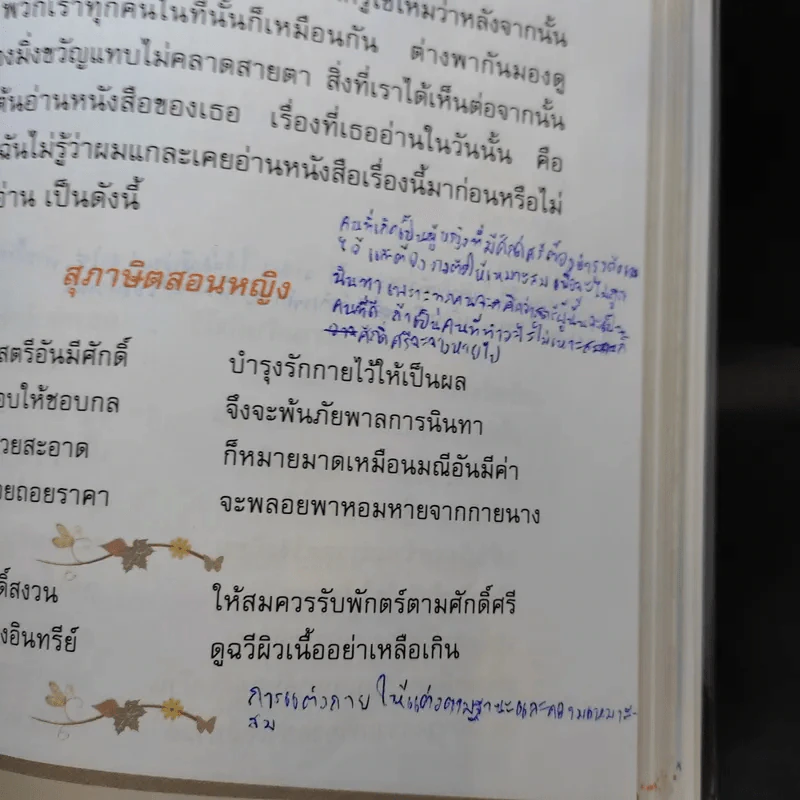 พวกเราทุกคนในที่นั้นก็เหมือนกัน ต่างพากันมองดู
มิ่งขวัญแทบไม่คลาดสายตา สิ่งที่เราได้เห็นต่อจากนั้น
อ่านหนังสือของเธอ เรื่องที่เธออ่านในวันนั้น คือ
ฉันไม่รู้ว่าผมแกละเคยอ่านหนังสือเรื่องนี้มาก่อนหรือไม่
อ่าน เป็นดังนี้
คนที่เกิดเป็นผู้หญิงที่มีศักดิ์ศรีต้อง
ให้ดี และต้อง ให้เหมาะสม เพื่อจะไม่ถูก
นินทา เพราะทุกคนจะคิดว่า
คนที่ดี ถ้าเป็นคนที่ทำอะไรไม่เหมาะ ก็
ศักดิ์ศรีจะจางหายไป
สุภาษิตสอนหญิง
สตรีอันมีศักดิ์ บำรุงรักกายไว้ให้เป็นผล
อบให้ชอบกล จึงจะพ้นภัยพาลการนินทา
วยสะอาด ก็หมายมาดเหมือนมณีอันมีค่า
ยถอยราคา จะพลอยพาหอมหายจากกายนาง
สงวน ให้สมควรรับพักตร์ตามศักดิ์ศรี
งอินทรีย์ ดูฉวีผิวเนื้ออย่าเหลือเกิน
การแต่งกาย ให้แต่งตามฐานะและความเหมาะ
สม